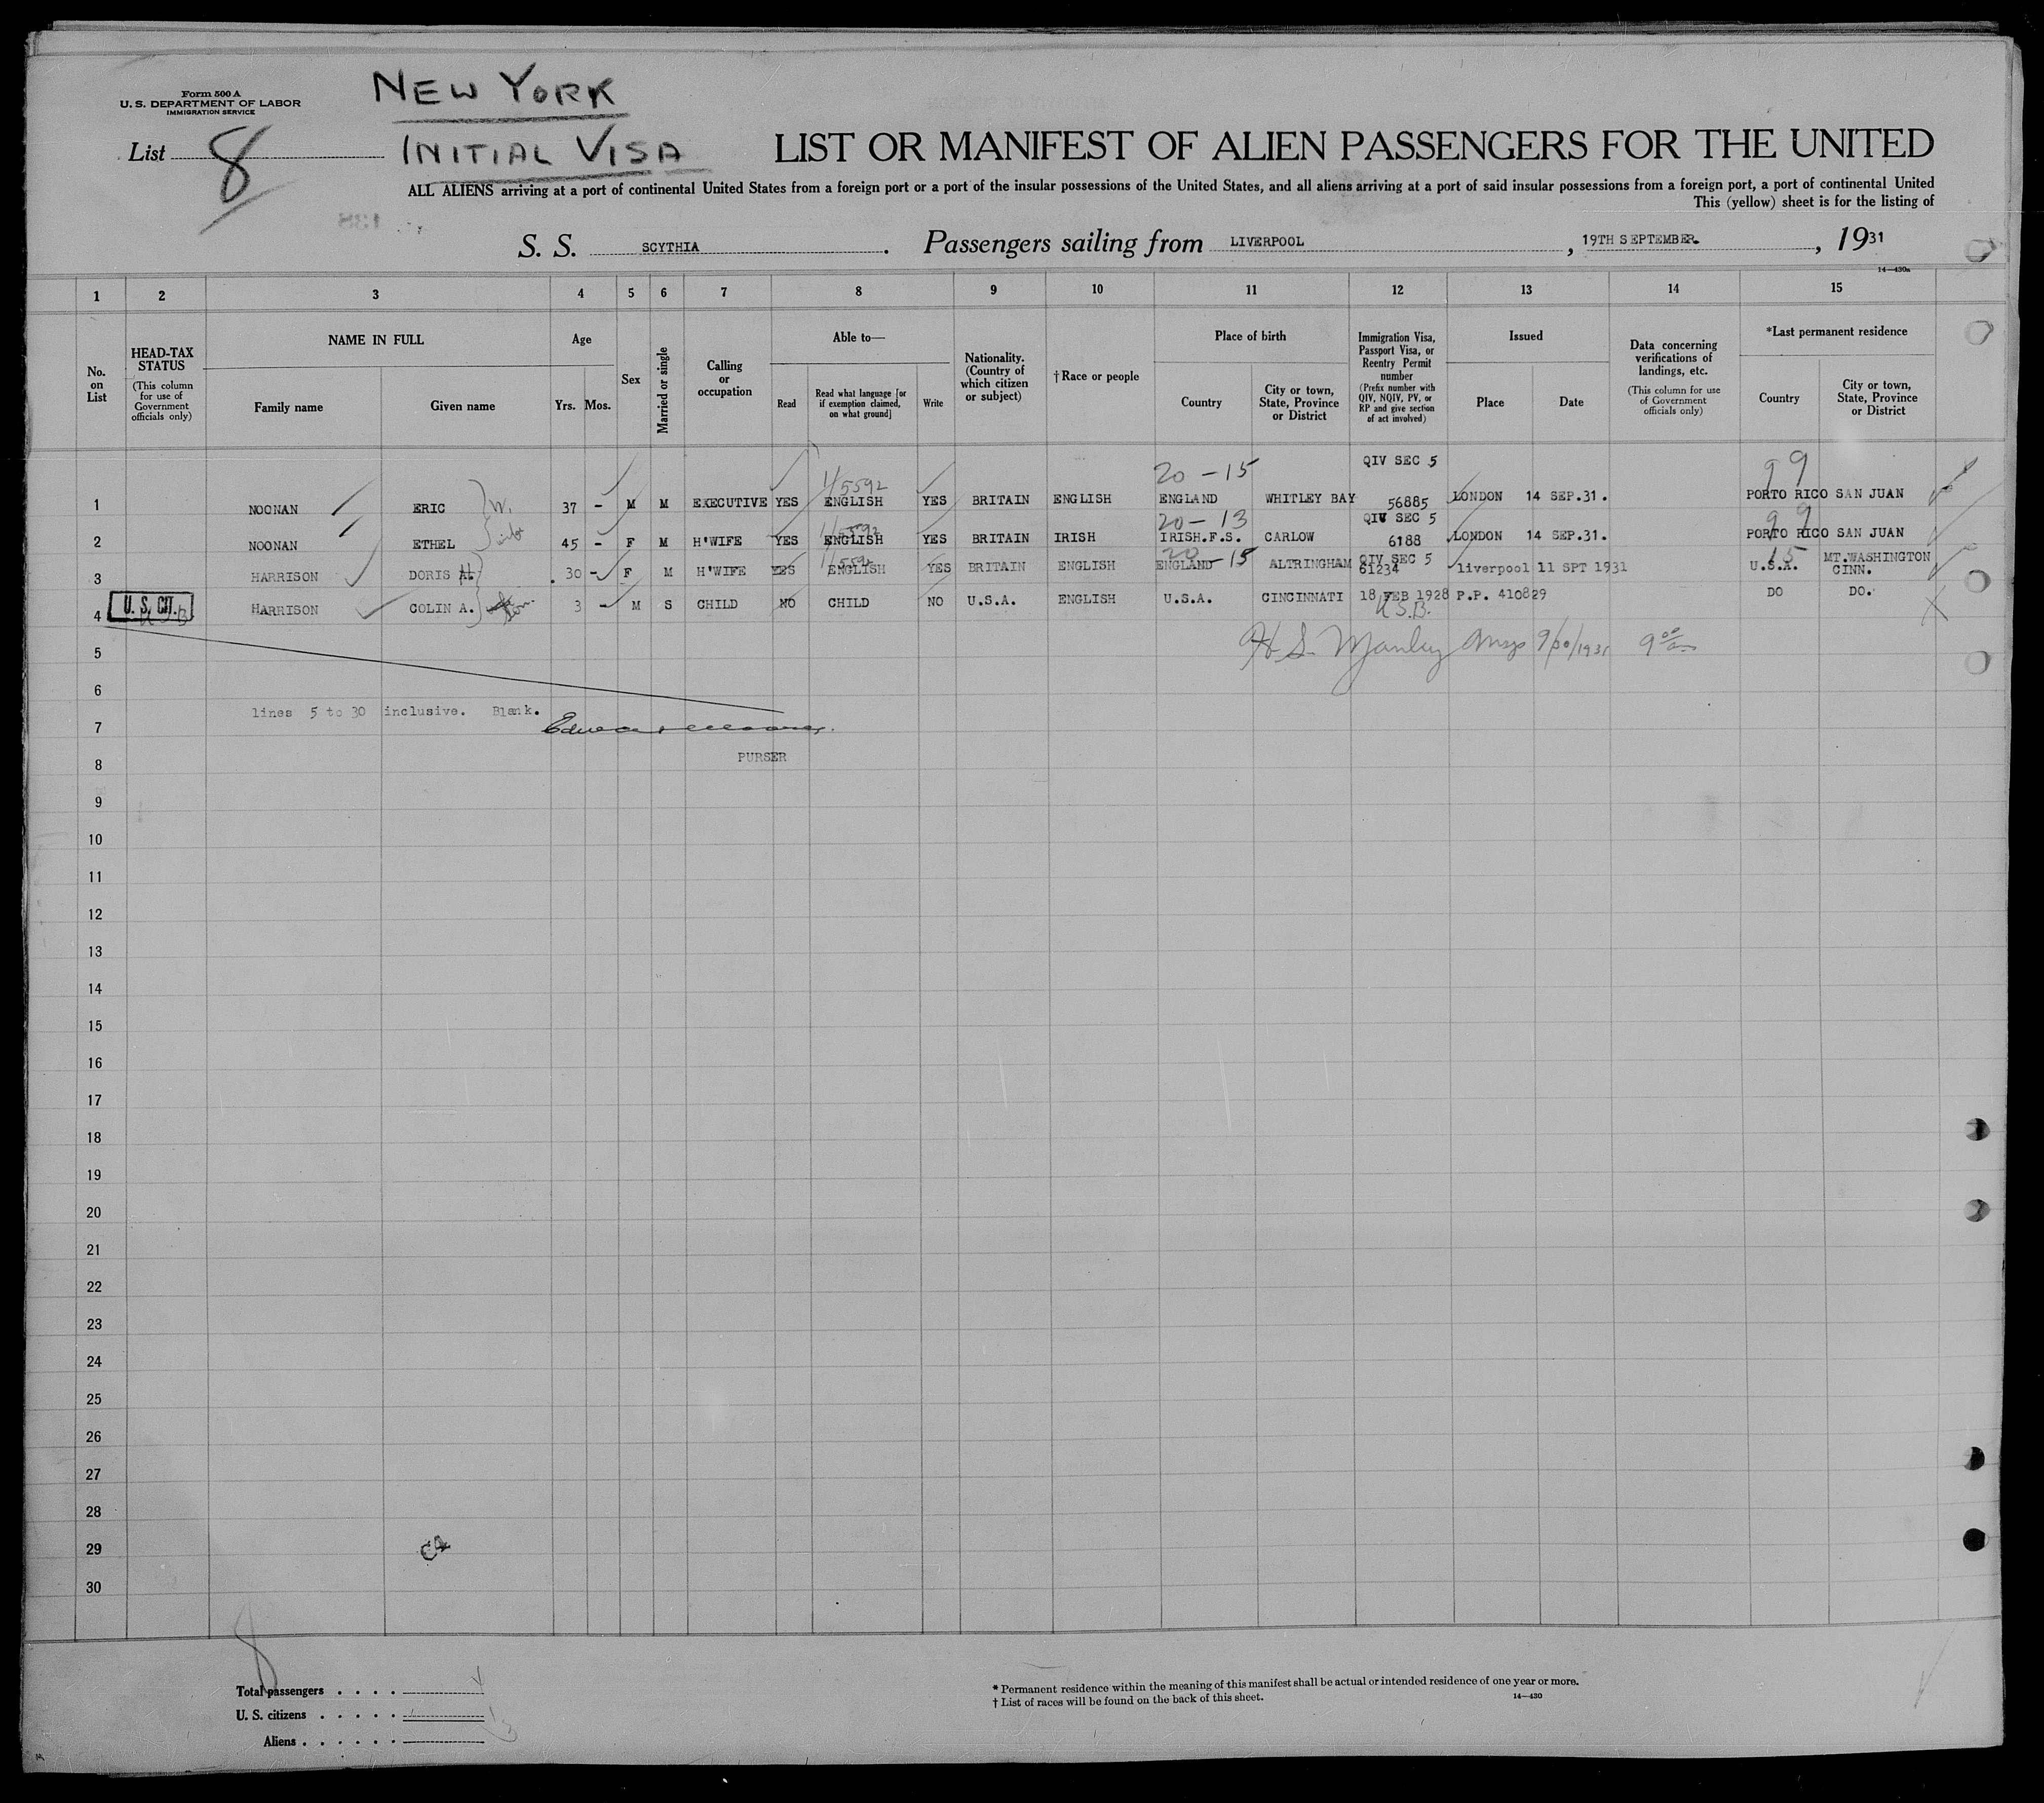 Form 500 A
U. S. DEPARTMENT OF LABOR
IMMIGRATION SERVICE
NEW YORK
INITIAL VISA
List 8
LIST OR MANIFEST OF ALIEN PASSENGERS FOR THE UNITED
ALL ALIENS arriving at a port of continental United States from a foreign port or a port of the insular possessions of the United States, and all aliens arriving at a port of said insular possessions from a foreign port, a port of continental United
This (yellow) sheet is for the listing of
S. S. SCYTHIA. Passengers sailing from LIVERPOOL, 19TH SEPTEMBER., 1931
14—430a
1 2 3 4 5 6 7 8 9 10 11 12 13 14 15
No. on List
HEAD-TAX STATUS (This column for use of Government officials only)
NAME IN FULL
Family name Given name
Age
Yrs. Mos.
Sex
Married or single
Calling or occupation
Able to—
Read
Read what language [or if exemption claimed, on what ground]
Write
Nationality. (Country of which citizen or subject)
†Race or people
Place of birth
Country
City or town, State, Province or District
Immigration Visa, Passport Visa, or Reentry Permit number (Prefix number with QIV, NQIV, PV, or RP and give section of act involved)
Issued
Place Date
Data concerning verifications of landings, etc. (This column for use of Government officials only)
*Last permanent residence
Country
City or town, State, Province or District
1/5592 20-15 QIV SEC 5 99
1 NOONAN ERIC W. 37 - M M EXECUTIVE YES ENGLISH YES BRITAIN ENGLISH ENGLAND WHITLEY BAY 56885 LONDON 14 SEP.31. PORTO RICO SAN JUAN
1/5592 20-13 QIV SEC 5 99
2 NOONAN ETHEL 45 - F M H'WIFE YES ENGLISH YES BRITAIN IRISH IRISH.F.S. CARLOW 6188 LONDON 14 SEP.31. PORTO RICO SAN JUAN
1/5592 20-15 QIV SEC 5 15
3 HARRISON DORIS 30 - F M H'WIFE YES ENGLISH YES BRITAIN ENGLISH ENGLAND ALTRINGHAM 61234 liverpool 11 SPT 1931 U.S.A. MT.WASHINGTON CINN.
4 U. S. CIT. HARRISON COLIN A. son. 3 - M S CHILD NO CHILD NO U.S.A. ENGLISH U.S.A. CINCINNATI 18 FEB 1928 P.P. 410829 DO DO.
U.S.B.
5 H S. Manley Insp 9/30/1931 9 00
6
lines 5 to 30 inclusive. Blank.
7
PURSER
8
9
10
11
12
13
14
15
16
17
18
19
20
21
22
23
24
25
26
27
28
29
30
8
Total passengers . . . .
U. S. citizens . . . . . 1
Aliens . . . . . . 3
* Permanent residence within the meaning of this manifest shall be actual or intended residence of one year or more.
† List of races will be found on the back of this sheet.
14—430